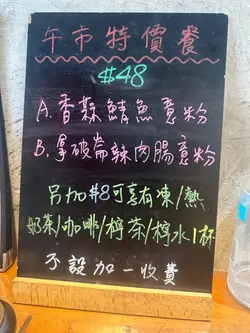 午市特價餐
$48
A. 香蒜鯖魚意粉
B. 拿破崙辣肉腸意粉
另加$8可享有凍/熱
奶茶/咖啡/檸茶/檸水1杯
不設加一收費